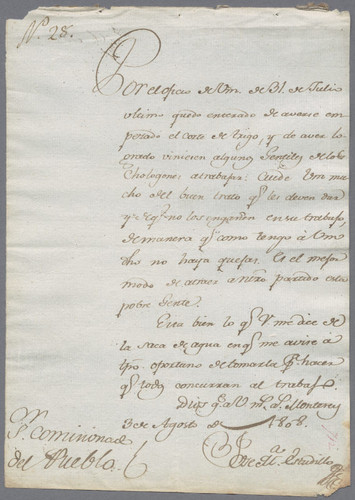 N. 28.
Por el oficio de Vm. de 31. de Julio
ultimo quedo enterado de averse em
pezado el corte de trigo, y de aver lo
grado viniesen algunos Gentiles de los
Chologones a trabajar: Cuide Vm mu
cho del buen trato qe. les deven dar
y de qe. no los engañen en su trabajo,
de manera qe. como tengo à Vm
dho no haya quejas. Es el mejor
modo de atraer a ntro partido esta
pobre Gente.
Esta bien lo qe. V me dice de
la saca de agua en qe. me avise à
tpo. oportuno de tomarla pa. hacer
qe. todos concurran al trabajo.
Dios gue. a Vm. ms. as. Monterey
3 de Agosto de 1808.
Jose Ma. Estudillo
Sr. Comisionado
del Pueblo.